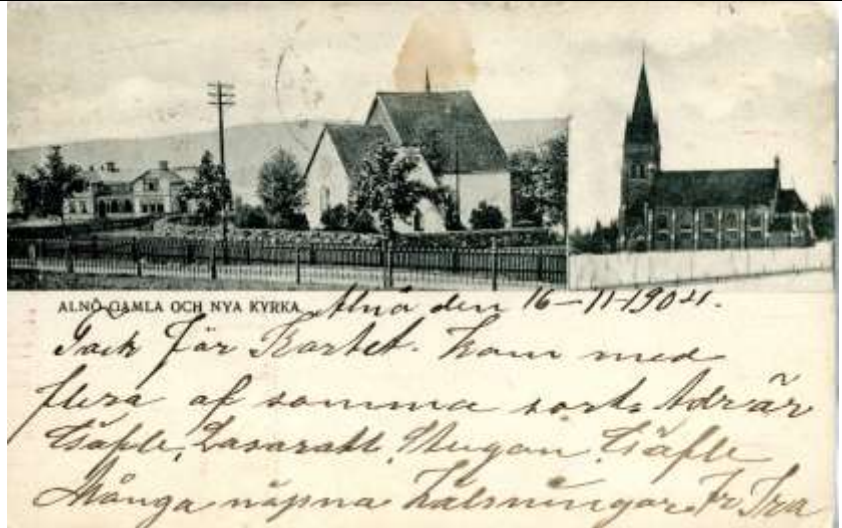 ALNÖ GAMLA OCH NYA KYRKA
Alnö den 16-11-1904.
Tack för Kortet. Kom med
flera af samma sort. Adr är
Gäfle, Lasarett, Stugan, Gäfle
Många Hälsningar Fr